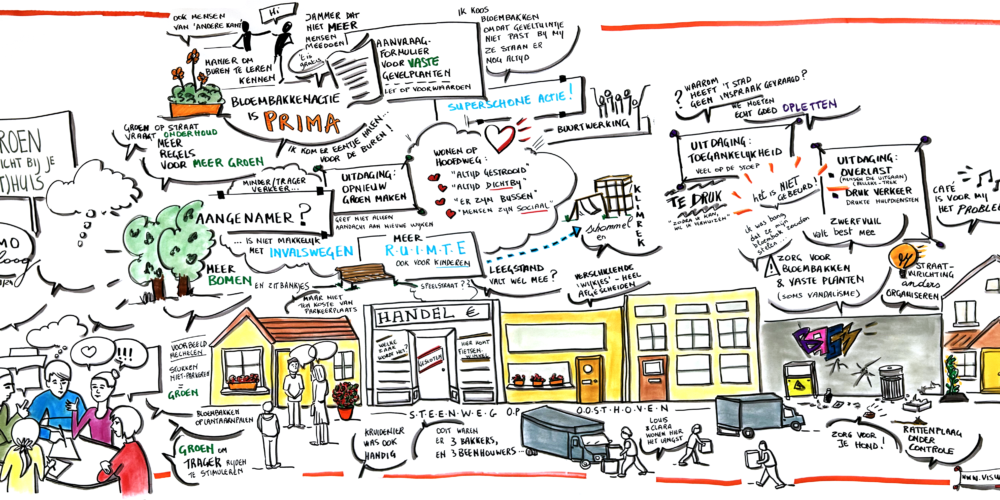 OOK MENSEN
VAN 'ANDERE KANT'
Hi
MANIER OM
BUREN TE LEREN
KENNEN
JAMMER DAT
NIET MEER
MENSEN
MEEDOEN
't is
gratis
AANVRAAG-
FORMULIER
VOOR VASTE
GEVELPLANTEN
LET OP VOORWAARDEN
IK KOOS
BLOEMBAKKEN
OMDAT GEVELTUINTJE
NIET PAST BIJ MIJ
ZE STAAN ER
NOG ALTIJD
BLOEMBAKKENACTIE
IS PRIMA
IK KOM ER EENTJE HALEN...
VOOR DE BUREN!
SUPERSCHONE ACTIE!
BUURTWERKING
GROEN OP STRAAT
VRAAGT ONDERHOUD
MEER
REGELS
VOOR MEER GROEN
ROEN
ICHT BIJ JE
T)HUIS
MINDER/TRAGER
VERKEER...
AANGENAMER?
... IS NIET MAKKELIJK
MET INVALSWEGEN
UITDAGING:
OPNIEUW
GROEN MAKEN
GEEF NIET ALLEEN
AANDACHT AAN NIEUWE WIJKEN
WONEN OP
HOOFDWEG:
"ALTIJD GESTROOID"
"ALTIJD DICHTBIJ"
"ER ZIJN BUSSEN
"MENSEN ZIJN SOCIAAL"
MEER
R·U·I·M·T·E
OOK VOOR KINDEREN
schommel
en
KLIMREK
MEER
BOMEN
EN ZITBANKJES
MAAR NIET
TEN KOSTE VAN
PARKEERPLAATS
SPEELSTRAAT??
LEEGSTAND
VALT WEL MEE?
VERSCHILLENDE
'WIJKJES' - HEEL
AFGESCHEIDEN
? WAAROM
HEEFT 'T STAD
GEEN INSPRAAK GEVRAAGD?
WE MOETEN
ECHT GOED OPLETTEN
UITDAGING:
TOEGANKELIJKHEID
VEEL OP DE STOEP
TE DRUK
WIL IK VERHUIZEN"
HET IS NIET
GEBEURD!
ik was bang
dat ze mijn
bloembak zouden
stelen...
UITDAGING:
OVERLAST
DRUK VERKEER
DRUKTE HULPDIENSTEN
ZWERFVUIL
valt best mee
CAFÉ
IS VOOR MIJ
HET PROBLEEM
ZORG VOOR
BLOEMBAKKEN
& VASTE PLANTEN
(SOMS VANDALISME)
STRAAT-
INRICHTING
anders
ORGANISEREN
VOORBEELD
MECHELEN
STUKKEN
NIET-PARKEREN
= GROEN
BLOEMBAKKEN
OP LANTAARNPALEN
GROEN OM
TRAGER RIJDEN
TE STIMULEREN
!!!
HANDEL €
WELKE
ZAAK
WORDT HET?
GESLOTEN
HIER KOMT
FIETSEN-
WINKEL
STEENWEG OP OOSTHOVEN
KRUIDENIER
WAS OOK
HANDIG
OOIT WAREN
ER 3 BAKKERS,
EN 3 BEENHOUWERS...
LOUIS
& CLARA
WONEN HIER
HET LANGST
ZORG VOOR
JE HOND!
RATTENPLAAG
ONDER
CONTROLE